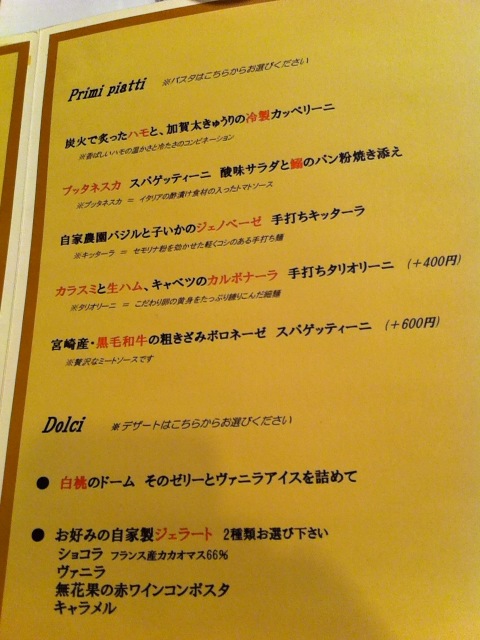 Primi piatti ※パスタはこちらからお選びください
炭火で炙ったハモと、加賀太きゅうりの冷製カッペリーニ
※香ばしいハモの温かさと冷たさのコンビネーション
プッタネスカ スパゲッティーニ 酸味サラダと鰯のパン粉焼き添え
※プッタネスカ = イタリアの酢漬け食材の入ったトマトソース
自家農園バジルと子いかのジェノベーゼ 手打ちキッターラ
※キッターラ = セモリナ粉を効かせた軽くコシのある手打ち麺
カラスミと生ハム、キャベツのカルボナーラ 手打ちタリオリーニ (+400円)
※タリオリーニ = こだわり卵の黄身をたっぷり練りこんだ細麺
宮崎産・黒毛和牛の粗きざみボロネーゼ スパゲッティーニ (+600円)
※贅沢なミートソースです
Dolci ※デザートはこちらからお選びください
● 白桃のドーム そのゼリーとヴァニラアイスを詰めて
● お好みの自家製ジェラート 2種類お選び下さい
ショコラ フランス産カカオマス66%
ヴァニラ
無花果の赤ワインコンポスタ
キャラメル